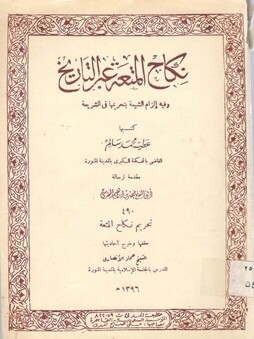 نكاح المتعة عبر التاريخ
وفيه إلزام الشيعة بتحريمها في الشريعة
كتبها
عطية محمد سالم
القاضي بالمحكمة الكبرى بالمدينة المنورة
مقدمة لرسالة
٤٩٠
تحريم نكاح المتعة
حققها وخرج أحاديثها
الشيخ حماد الأنصاري
المدرس بالجامعة الإسلامية بالمدينة المنورة
١٣٩٦ هـ